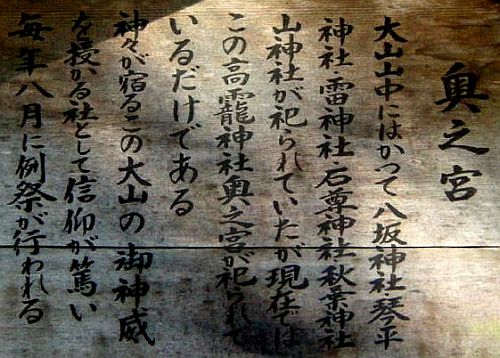 奥之宮
大山山中にはかつて八坂神社琴平
神社雷神社石尊神社秋葉神社
山神社が祀られていたが現在では
この高龗神社奥之宮が祀られて
いるだけである
神々が宿るこの大山の御神威
を授かる社として信仰が篤い
毎年八月に例祭が行われる